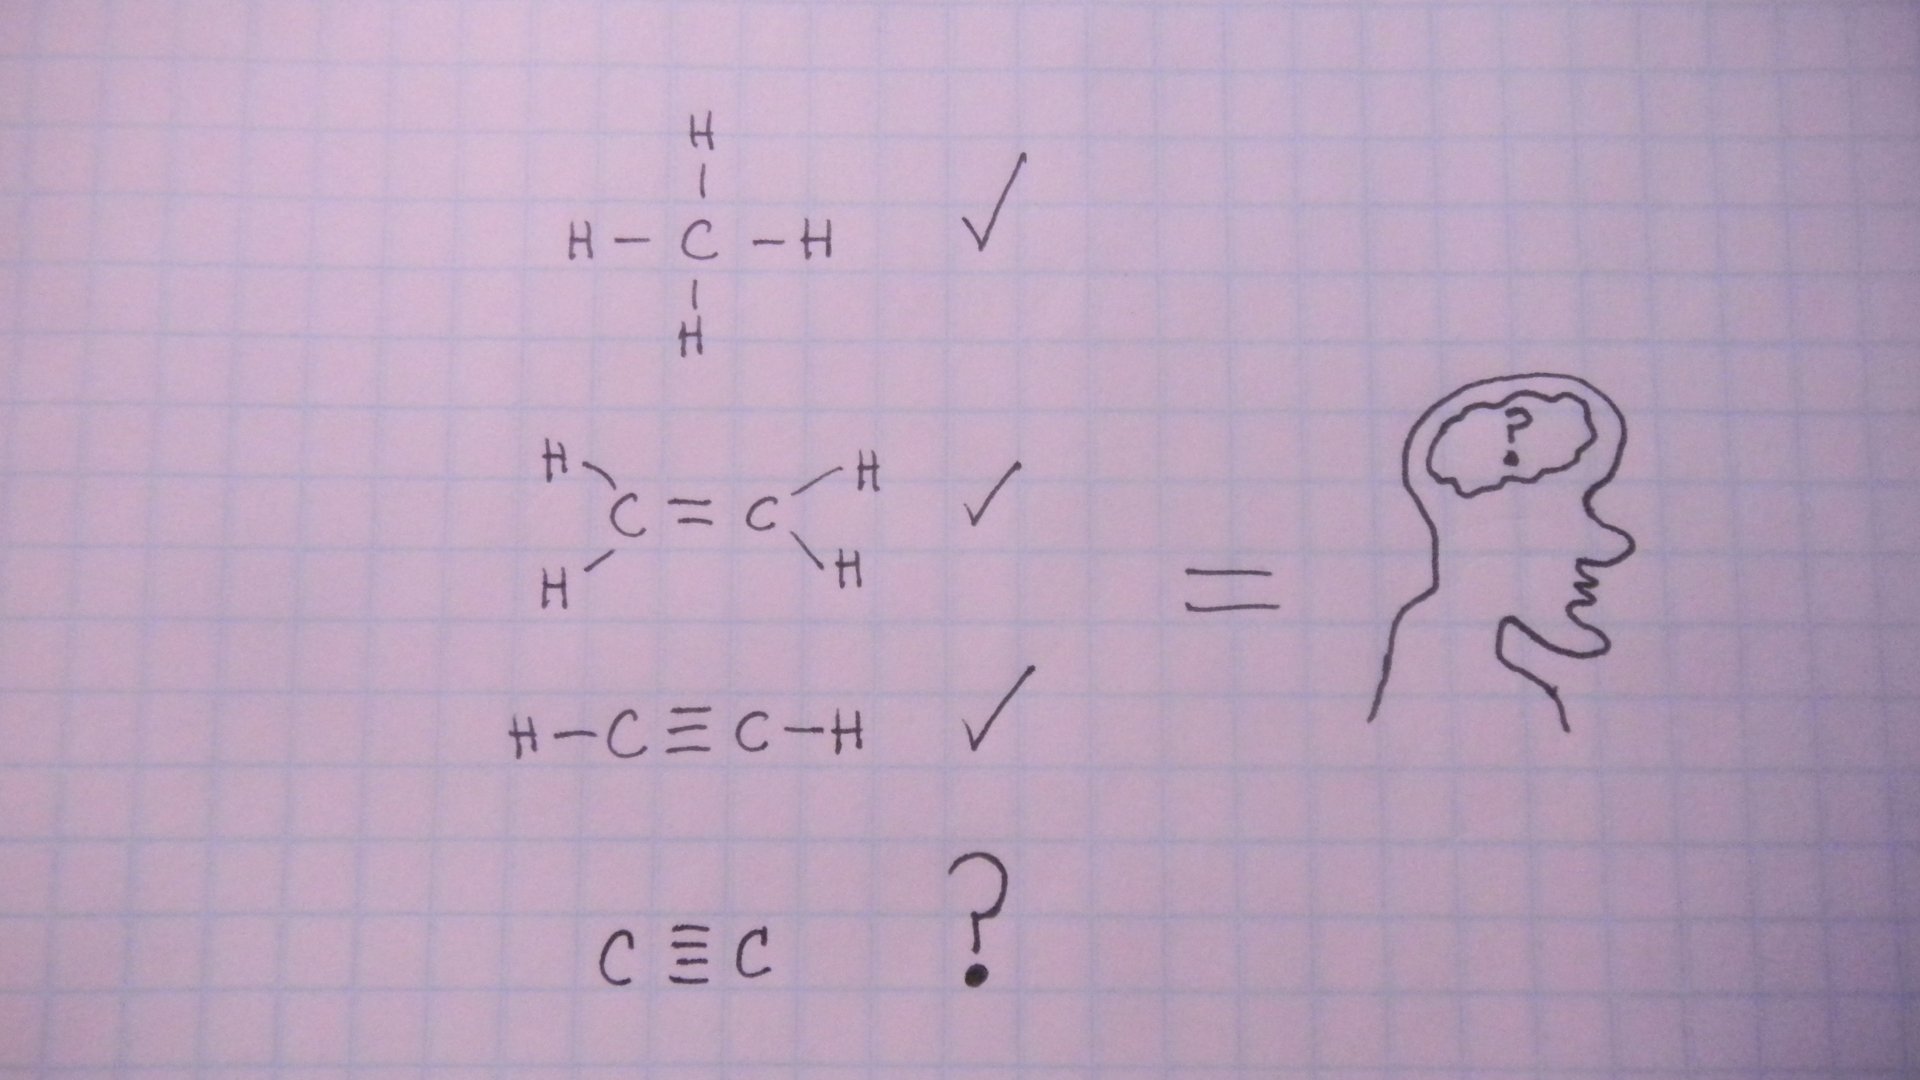 H
H – C – H
H
H H
C = C
H H
H – C ≡ C – H
C ≣ C ?
=
?